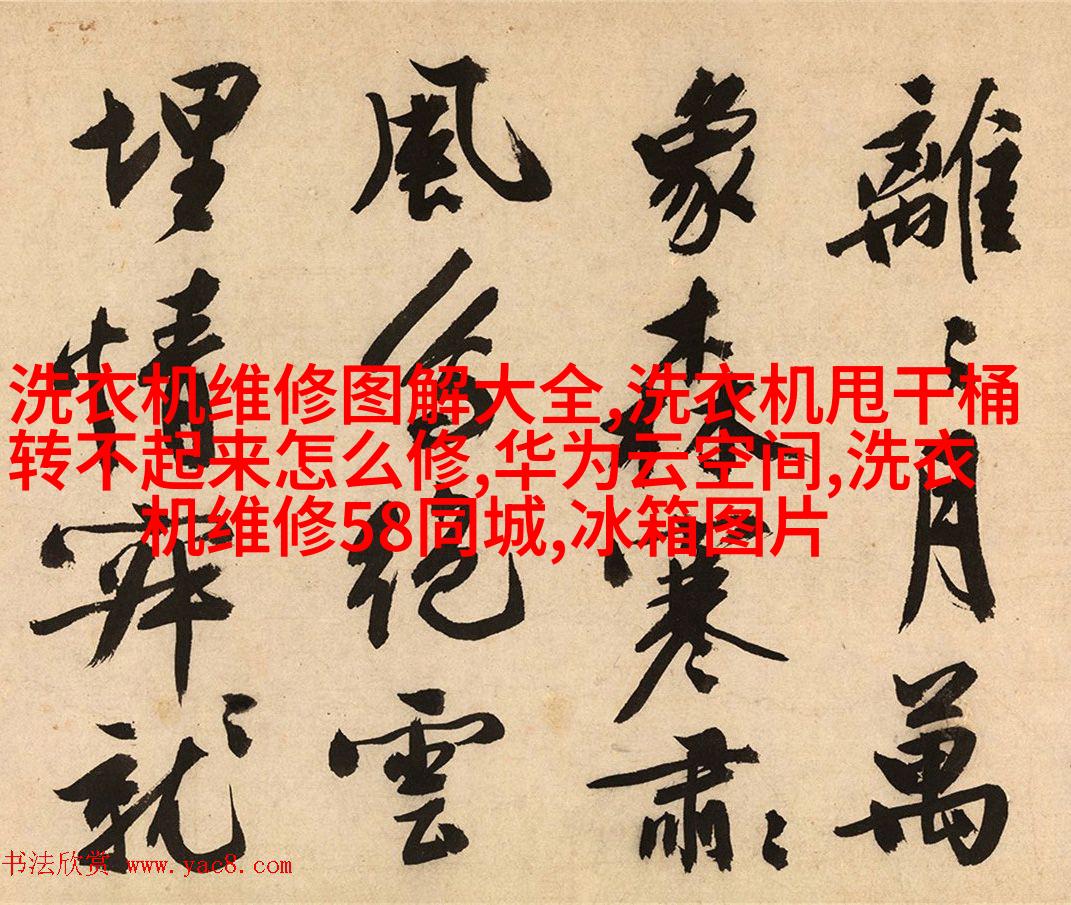 洗衣机维修图解大全,洗衣机甩干桶
转不起来怎么修,华为云空间,洗衣
机维修58同城,冰箱图片
離〻月萬
象森寒肅〻
風絕雲
埋情
书法欣赏 www.yac8.com